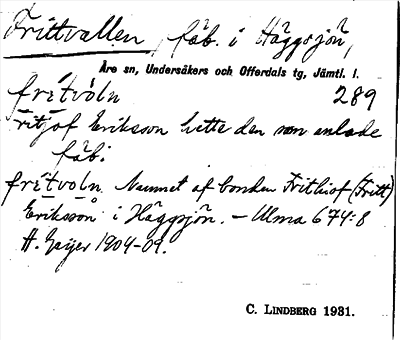 Frittvallen, fäb. i Häggsjön,
Åre sn, Undersåkers och Offerdals tg, Jämtl. l.
frítvòln 289
Fritjof Eriksson hette den som anlade
fäb.
frítvòln Namnet af bonden Frithiof (Fritt)
Eriksson i Häggsjön. – Ulma 674:8
H. Geijer 1904-09.
C. LINDBERG 1931.